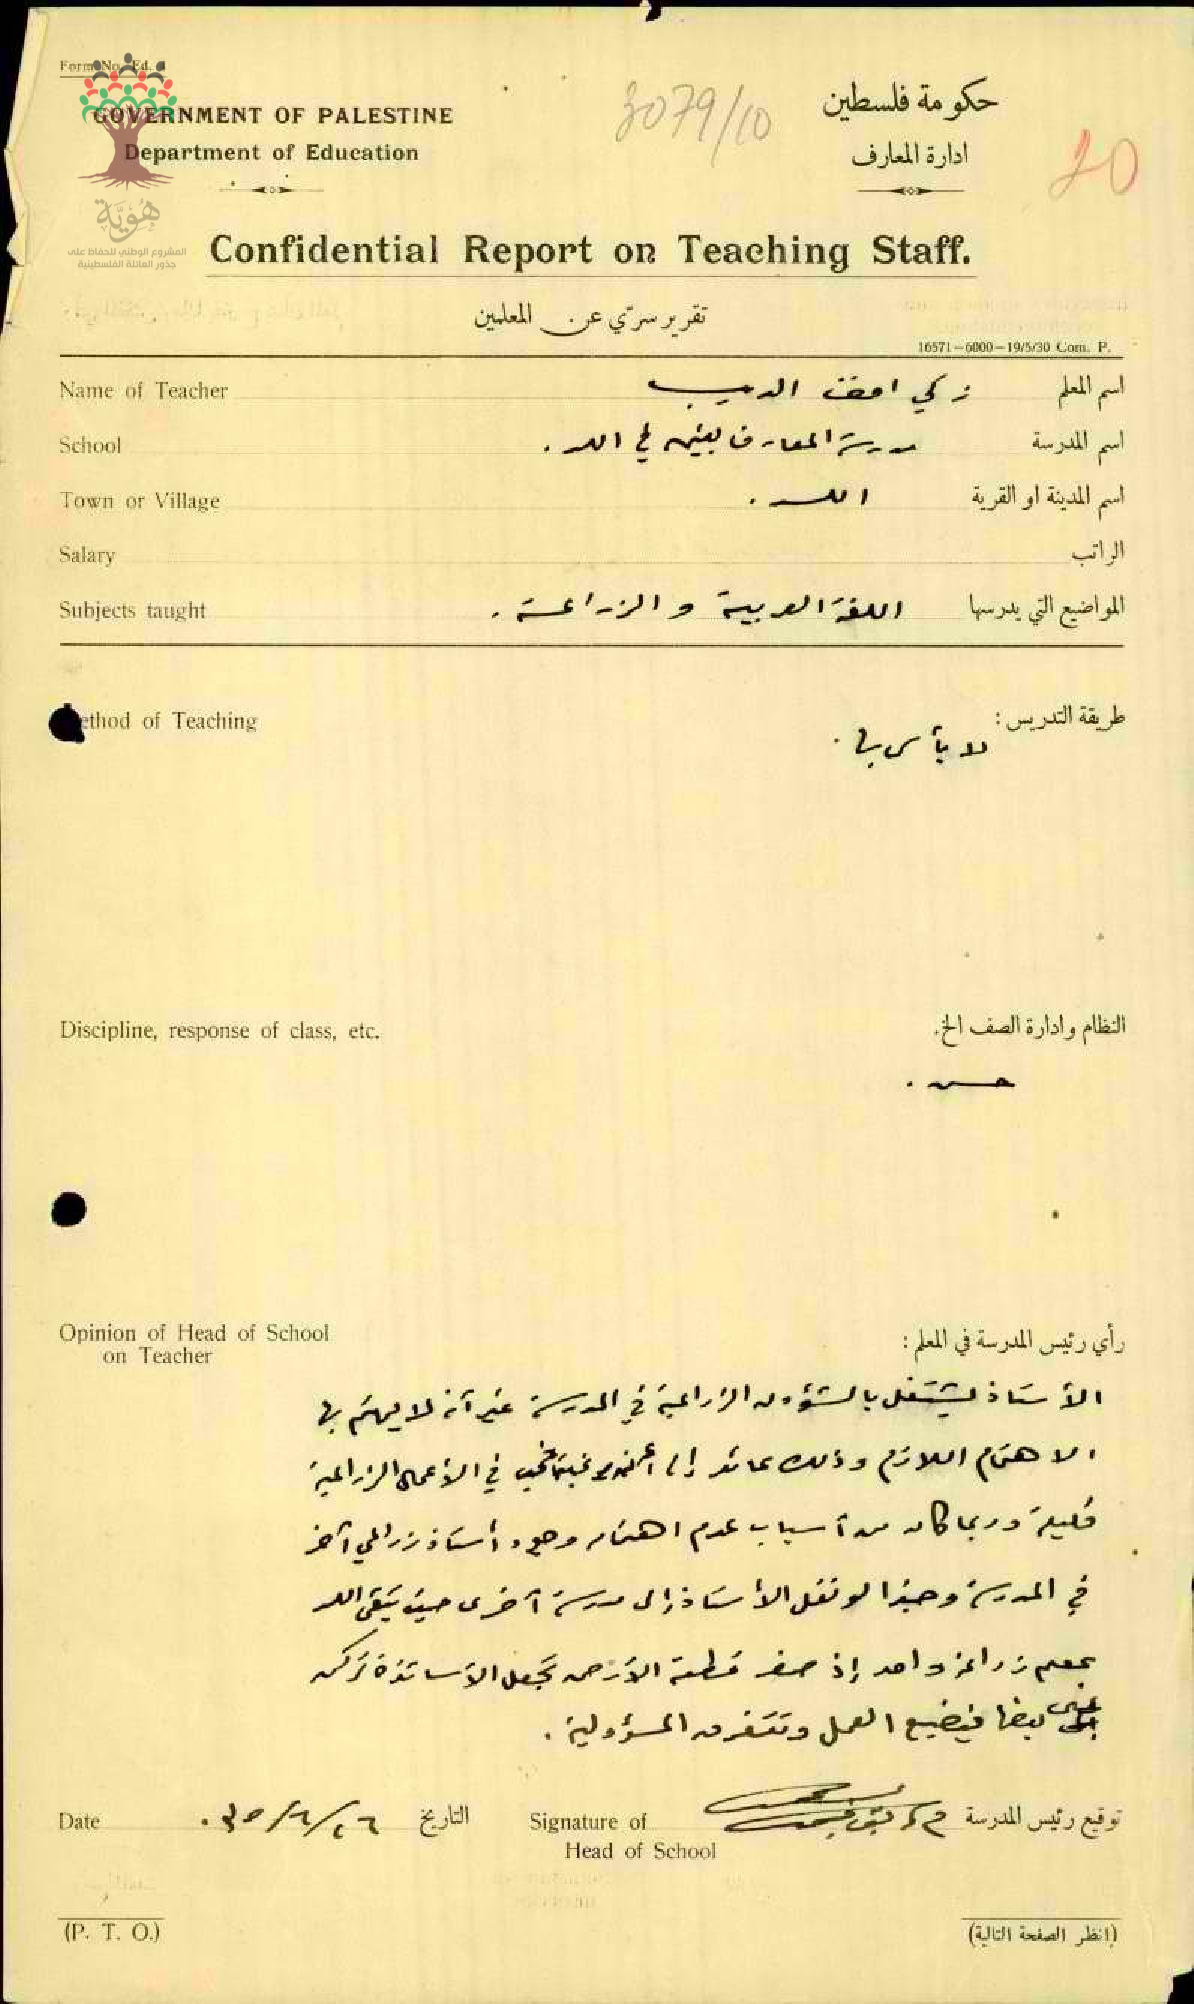 Form No. Ed.
GOVERNMENT OF PALESTINE
Department of Education
3079/10
حكومة فلسطين
ادارة المعارف
20
هُوِيَّة
المشروع الوطني للحفاظ على
جذور العائلة الفلسطينية
Confidential Report on Teaching Staff.
تقرير سرّي عن المعلمين
16571—6000—19/5/30 Com. P.
Name of Teacher زكي افندي الديب اسم المعلم
School مدرسة المعارف للبنين في اللد . اسم المدرسة
Town or Village اللد . اسم المدينة او القرية
Salary الراتب
Subjects taught اللغة العربية و الزراعة . المواضيع التي يدرسها
ethod of Teaching طريقة التدريس :
لا بأس بها .
Discipline, response of class, etc. النظام وادارة الصف الخ.
حسن .
Opinion of Head of School رأي رئيس المدرسة في المعلم :
on Teacher
الأستاذ يشتغل بالشؤون الزراعية في المدرسة غير أنه لا يهتم بها
الاهتمام اللازم وذلك عائد إلى في الأعمال الزراعية
قليلة وربما كان من أسباب عدم اهتمامه وجود أستاذ زراعي آخر
في المدرسة وحبذا لو نقل الأستاذ إلى مدرسة أخرى حيث تبقى اللد
بمعلم زراعة واحد إذ صغر قطعة الأرض تجعل الأساتذة تركن
على بعضها فيضيع العمل وتتفرق المسؤولية .
Date ٢٦/٦/٣٥ . التاريخ Signature of توقيع رئيس المدرسة
Head of School
(P. T. O.) (انظر الصفحة التالية)